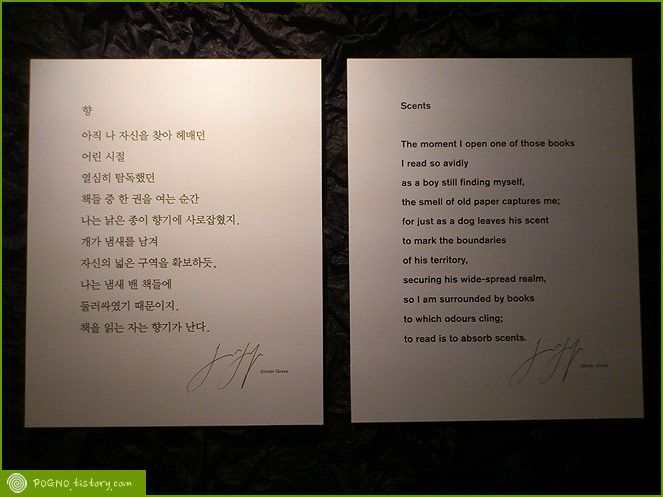 향
아직 나 자신을 찾아 헤매던
어린 시절
열심히 탐독했던
책들 중 한 권을 여는 순간
나는 낡은 종이 향기에 사로잡혔지.
개가 냄새를 남겨
자신의 넓은 구역을 확보하듯,
나는 냄새 밴 책들에
둘러싸였기 때문이지.
책을 읽는 자는 향기가 난다.
Günter Grass
Scents
The moment I open one of those books
I read so avidly
as a boy still finding myself,
the smell of old paper captures me;
for just as a dog leaves his scent
to mark the boundaries
of his territory,
securing his wide-spread realm,
so I am surrounded by books
to which odours cling;
to read is to absorb scents.
Günter Grass
POGNO.tistory.com